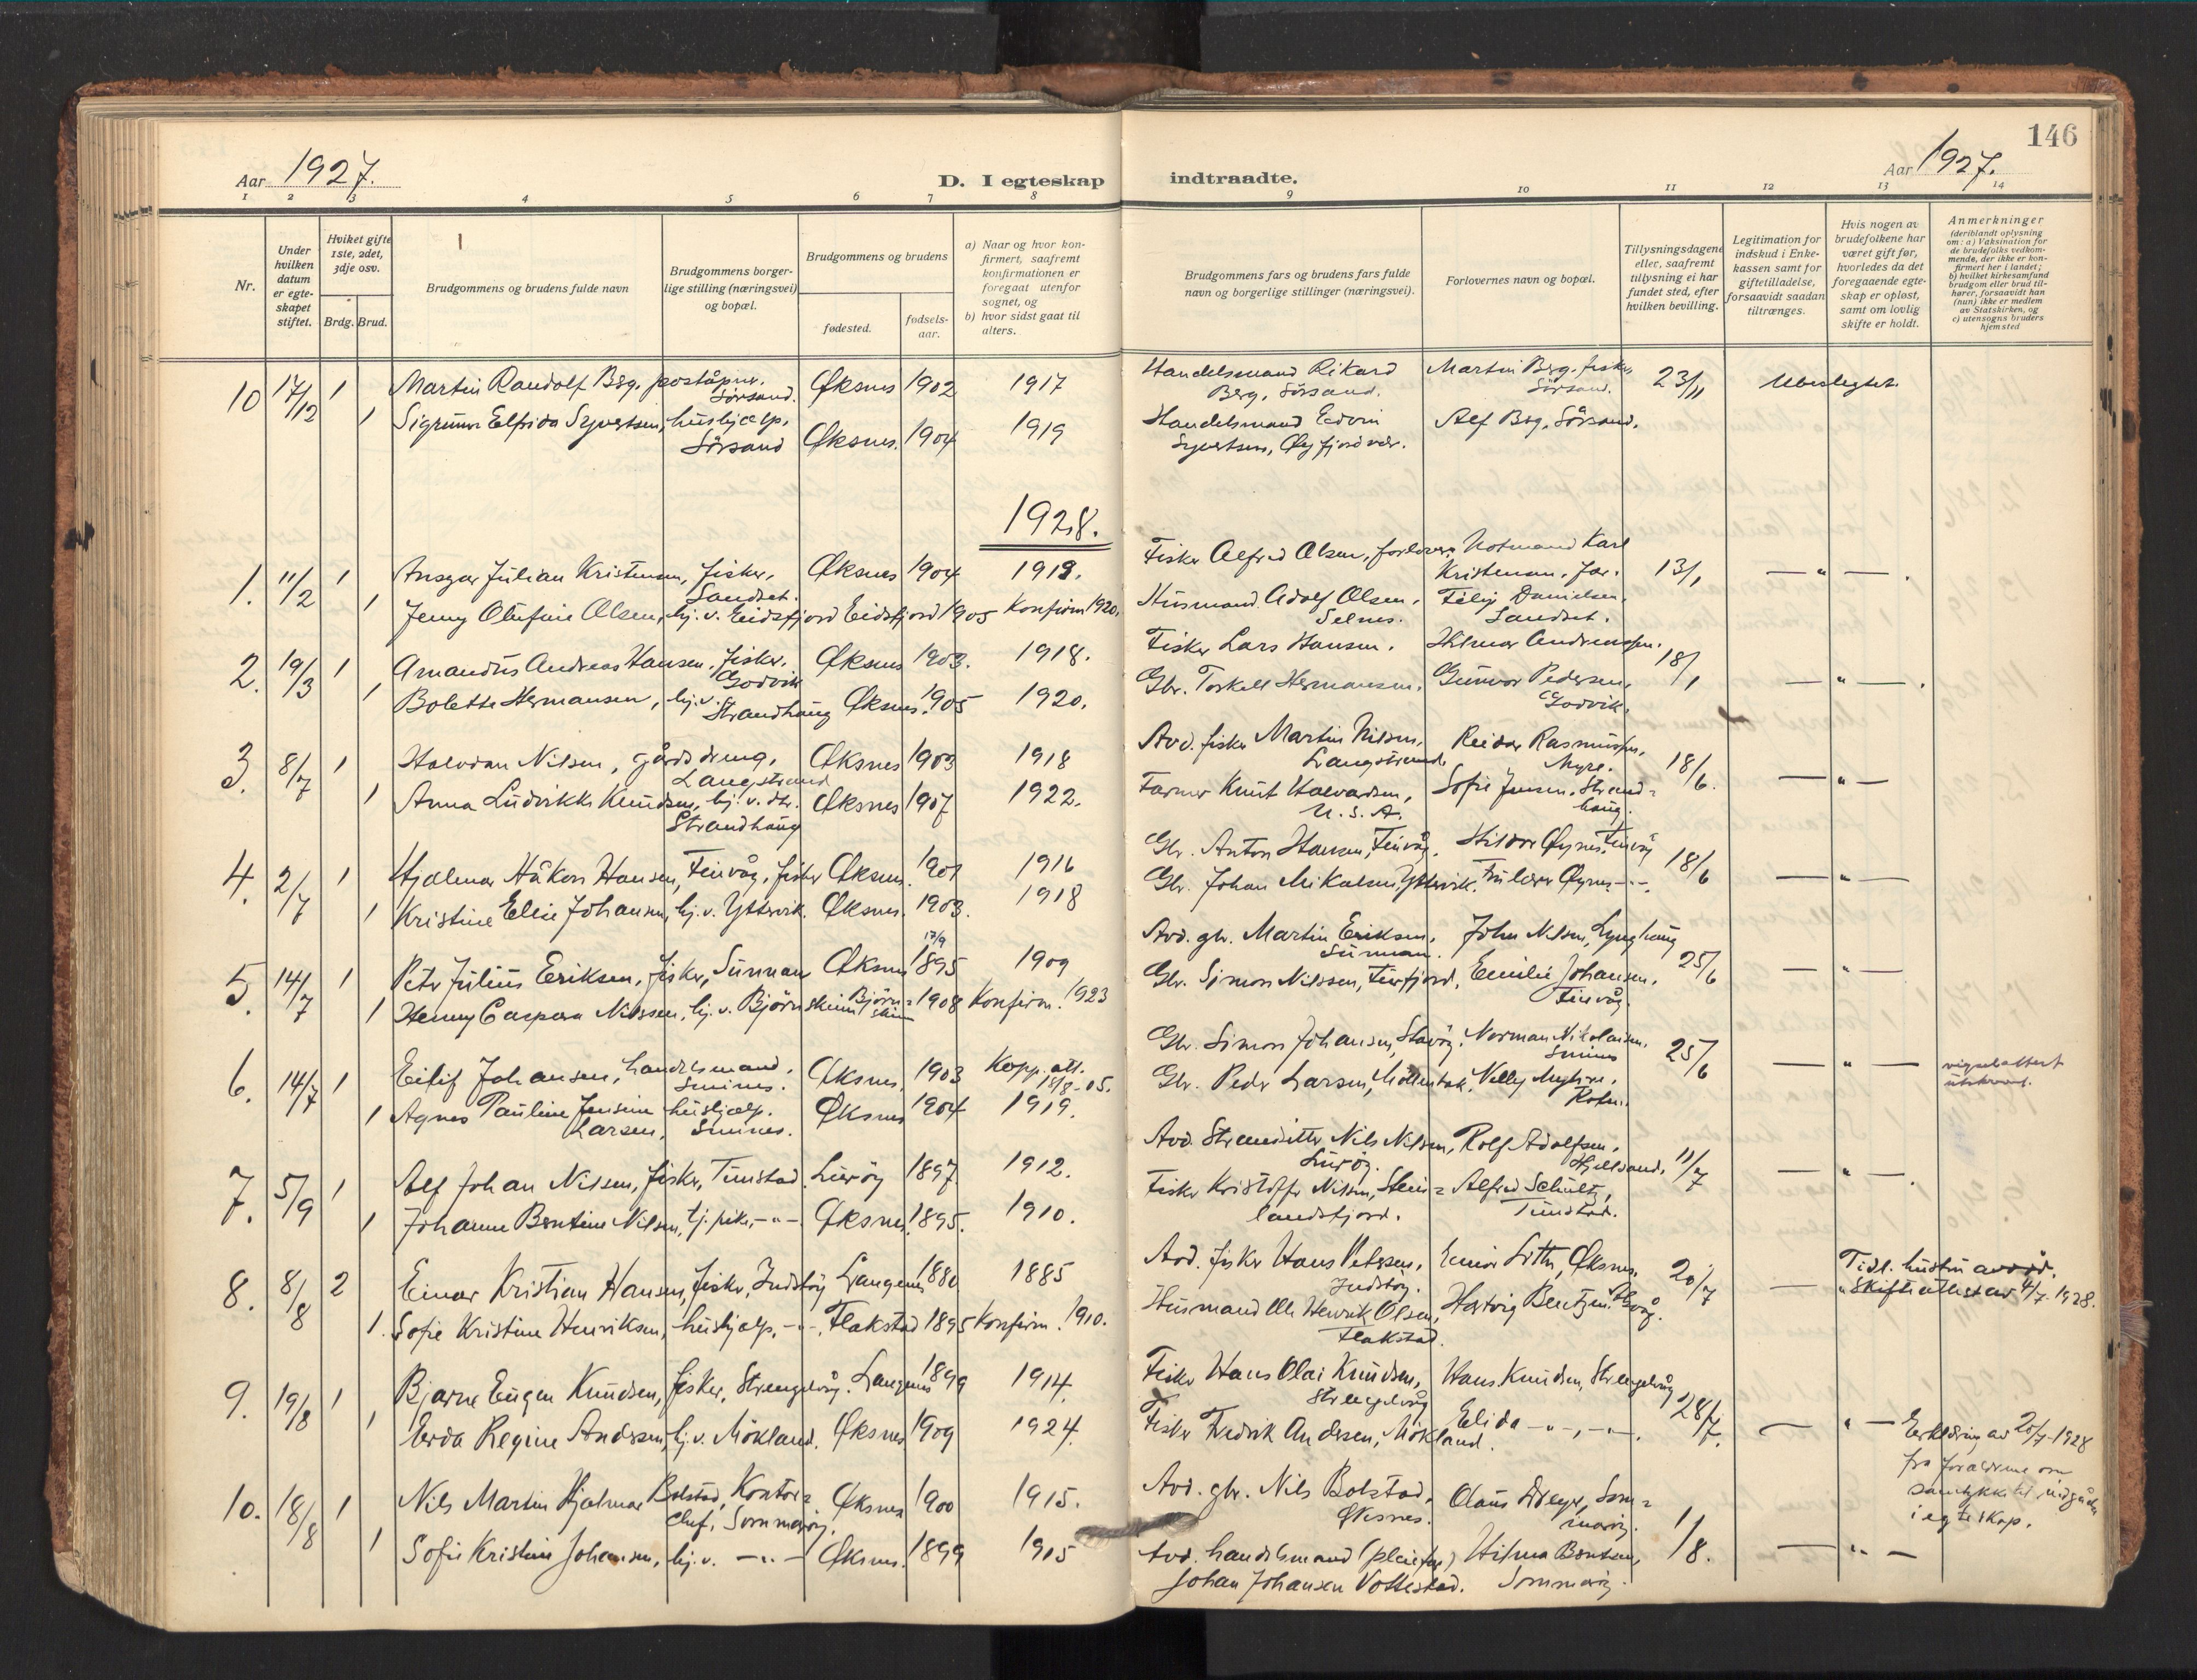 146
Aar 1927.
D. I egteskap indtraadte.
Aar 1927.
1 2 3 4 5 6 7 8 9 10 11 12 13 14
Nr.
Under hvilken datum er egteskapet stiftet.
Hviket gifte 1ste, 2det, 3dje osv.
Brdg. Brud.
Brudgommens og brudens fulde navn
Brudgommens borgerlige stilling (næringsvei) og bopæl.
Brudgommens og brudens
fødested.
fødselsaar.
a) Naar og hvor konfirmert, saafremt konfirmationen er foregaat utenfor sognet, og
b) hvor sidst gaat til alters.
Brudgommens fars og brudens fars fulde navn og borgerlige stillinger (næringsvei).
Forlovernes navn og bopæl.
Tillysningsdagene eller, saafremt tillysning ei har fundet sted, efter hvilken bevilling.
Legitimation for indskud i Enkekassen samt for giftetilladelse, forsaavidt saadan tiltrænges.
Hvis nogen av brudefolkene har været gift før, hvorledes da det foregaaende egteskap er opløst, samt om lovlig skifte er holdt.
Anmerkninger
(deriblandt oplysning om: a) Vaksination for de brudefolks vedkommende, der ikke er konfirmert her i landet; b) hvilket kirkesamfund brudgom eller brud tilhører, forsaavidt han (hun) ikke er medlem av Statskirken, og c) utensogns bruders hjemsted
10 17/12 1 Martin Randolf Berg, poståpnr. Sörsand. Øksnes 1902 1917 Handelsmand Rikard Berg, Sörsand. Martin Berg, fisker, Sörsand. 23/11 Ubeslegtet.
1 Sigrunn Elfrida Syvertsen, hushjælp, Sörsand Øksnes. 1904 1919 Handelsmand Edvin Syvertsen, Alf Berg, Sörsand.
1928.
1. 11/2 1 Ansgar Julian Kristensen, fisker, Sandset. Øksnes 1904 1919. Fisker Alfred Olsen, forlovers Notmand Karl Kristensen, far. 13/1 — " —.
1 Jenny Olufine Olsen, hj. v. Eidsfjord Eidsfjord 1905 Konfirm 1920. Husmand Adolf Olsen, Selnes. Danielsen, Sandset.
2. 19/3 1 Amandus Andreas Hansen, fisker, Godvik Øksnes 1903. 1918. Fisker Lars Hansen. Hilmar Andreassen. 18/1 — " —.
1 Bolette Hermansen, hj. v. Strandhaug Øksnes. 1905 1920. Gbr. Torkell Hermansen. Gunvor Pedersen, Godvik.
3. 8/7 1 Halvdan Nilsen, gårdsdreng, Langstrand Øksnes 1903 1918 Avd. fisker Martin Nilsen, Langstrand. Reidar Rasmussen, Myre. 18/6. — " —
1 Anna Ludvikke Knudsen, hj. v. dtr. Strandhaug Øksnes 1907 1922. Farmer Knut Halvardsen, U.S.A. Sofie Jensen, Strandhaug.
4. 2/7 1 Hjalmar Håkon Hansen, Tinvåg, fisker Øksnes. 1901 1916 Gbr. Anton Hansen, Tinvåg. Hildor Øynes, Tinvåg 18/6 — " —
1 Kristine Elise Johansen, hj. v. Yttervik. Øksnes. 1903. 1918 Gbr. Johan Mikalsen, Yttervik. Fru Øynes - " -.
5. 14/7 1 Petr Julius Eriksen, fisker, Sunnan Øksnes 17/9 1895 1909 Avd. gbr. Martin Eriksen, Sunnan. John Nilsen, Lynghaug 25/6 — " —
1 Henny Caspara Nilssen, hj. v. Björnskinn Björnskinn 1908 Konfirm. 1923 Gbr. Simon Nilssen, Emilie Johansen, Tinvåg.
6. 14/7 1 Eilif Johansen, handelsmand, Smines. Øksnes. 1903 Kopp. att. 18/8-05. Gbr. Simon Johansen, Stavög. Norman Nikolaisen, Smines 25/6 — " — vigselattest utskrevet.
1 Agnes Pauline Jensine Larsen, hushjælp. Smines. Øksnes 1904 1919. Gbr. Peder Larsen, Nelly
7. 5/9 1 Alf Johan Nilsen, fisker, Tunstad. Luröy 1897. 1912. Avd. Nils Nilsen, Luröy. Rolf Adolfsen, Hjellsand. 11/7 — " —.
1 Johanne Bentine Nilsen, tj. pike, - " - Øksnes. 1895. 1910. Fisker Kristoffer Nilsen, Steinlandsfjord. Alfred Schultz, Tunstad.
8. 8/8 2 Einar Kristian Hansen, fisker, Langenes 1880 1885 Avd. fisker Hans Petersen, Øksnes. 20/7 — Tidl. hustru avdöd. Skifteattest av 4/7-1928.
1. Sofie Kristine Henriksen, hushjælp, - " -, Flakstad 1895 Konfirm. 1910. Husmand Ole Henrik Olsen, Flakstad. Hartvig Bentzen,
9. 19/8 1 Bjarne Eugen Knudsen, fisker, Strengelvåg. Langenes 1899 1914. Fisker Hans Olai Knudsen, Strengelvåg Hans Knudsen, Strengelvåg 28/7. — " — Erklæring av 20/7-1928 fra forældrene om samtykke til indgåelse i egteskap.
1 Gerda Regine Andersen, hj. v. Mökland. Øksnes 1909 1924. Fisker Fredrik Andersen, Mökland. Elida - " -, - " -.
10. 18/8 1 Nils Martin Hjalmar Bolstad, Kontorchef, Sommaröy. Øksnes 1900 1915. Avd. gbr. Nils Bolstad, Øksnes. Olaus Sommaröy. 1/8. — " —
1 Sofie Kristine Johansen, hj. v. — " — Øksnes. 1899 1915 Avd. handelsmand Johan Johansen Vottestad. Hilma Bentsen, Sommaröy.